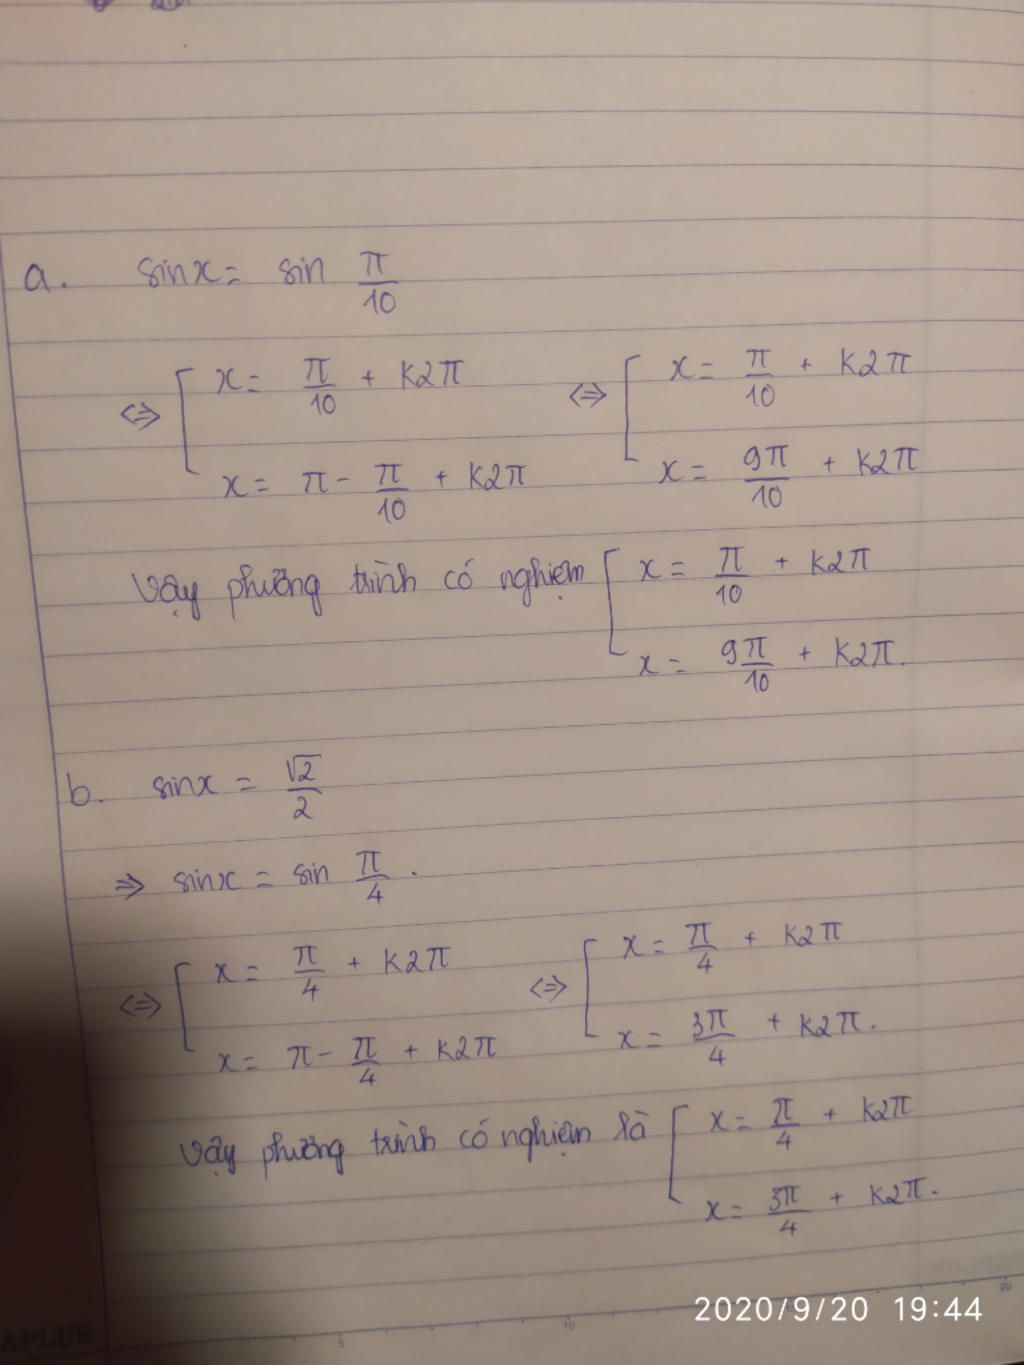 a. sinx = sin π/10
<=> [ x = π/10 + k2π <=> [ x = π/10 + k2π
x = π - π/10 + k2π x = 9π/10 + k2π
Vậy phương trình có nghiệm [ x = π/10 + k2π
x = 9π/10 + k2π.
b. sinx = √2/2
=> sinx = sin π/4.
<=> [ x = π/4 + k2π <=> [ x = π/4 + k2π
x = π - π/4 + k2π x = 3π/4 + k2π.
Vậy phương trình có nghiệm là [ x = π/4 + k2π
x = 3π/4 + k2π.
5 10 20
APLUS
2020/9/20 19:44